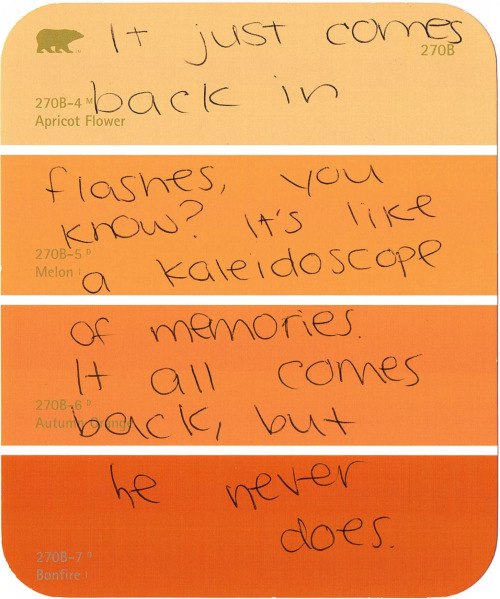 It just comes
270B
back in
270B-4 M
Apricot Flower
flashes, you
know? It's like
270B-5 D
Melon
a kaleidoscope
of memories.
It all comes
270B-6 D
Autumn Orange
back, but
he never
does.
270B-7 D
Bonfire